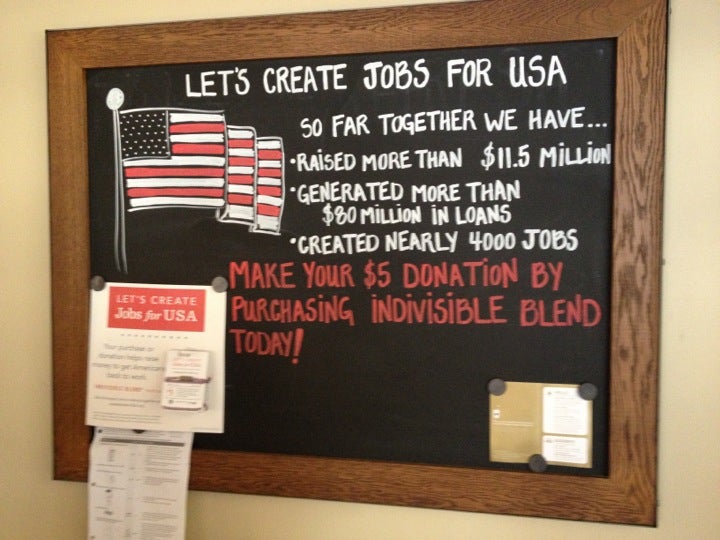 LET'S CREATE JOBS FOR USA
SO FAR TOGETHER WE HAVE...
•RAISED MORE THAN $11.5 MILLION
•GENERATED MORE THAN
$80 MILLION IN LOANS
•CREATED NEARLY 4000 JOBS
MAKE YOUR $5 DONATION BY
PURCHASING INDIVISIBLE BLEND
TODAY!
LET'S CREATE
Jobs for USA
Your purchase or
donation helps raise
money to get Americans
back to work.
INDIVISIBLE BLEND